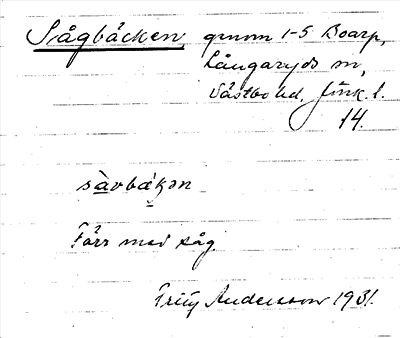 Sågbäcken, genom 1-5 Boarp,
Långaryds sn,
Västbo hd, Jönk. l.
14.
sàvbäkən
Förr med såg.
Fritz Andersson 1931.